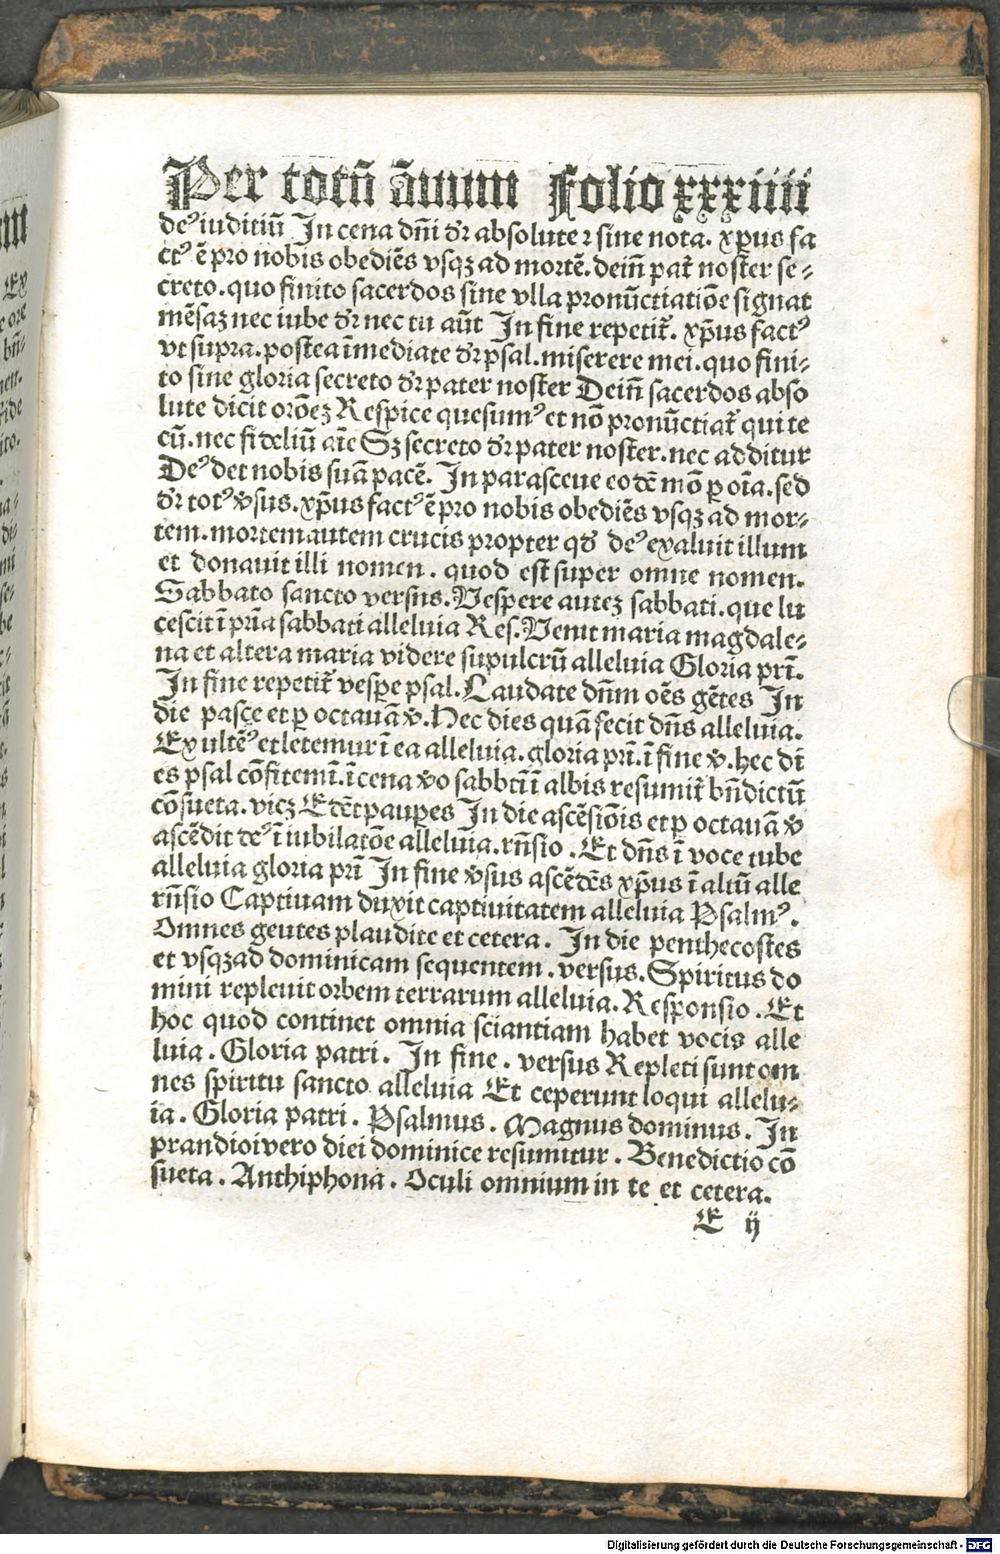 Per totū āuum Folio xxxiiii
de⁹ iuditiū In cena dn̄i dr̄ absolute ⁊ sine nota. xp̄us fa
ct⁹ ē pro nobis obediēs vsqꝫ ad mortē. dein̄ pat̄ noster se⸗
creto. quo finito sacerdos sine vlla pronūctiatiōe signat
mēsaꝫ nec iube dr̄ nec tu aūt In fine repetit᷑. xp̄us fact⁹
vt supra. postea īmediate dr̄ psal. miserere mei. quo fini⸗
to sine gloria secreto dr̄ pater noster Dein̄ sacerdos abso
lute dicit orōeꝫ Respice quesum⁹ et nō pronūctiat᷑ qui te
cū. nec fideliū aīe Sꝫ secreto dr̄ pater noster. nec additur
De⁹ det nobis suā pacē. In parasceue eodē mō ꝑ oīa. sed
dr̄ tot⁹ v̄sus. xp̄us fact⁹ ē pro nobis obediēs vsqꝫ ad mor⸗
tem. mortem autem crucis propter qd̄ de⁹ exaluit illum
et donauit illi nomen. quod est super omne nomen.
Sabbato sancto versus. Vespere auteꝫ sabbati. que lu
cescit ī prīa sabbati alleluia Res. Venit maria magdale⸗
na et altera maria videre supulcrū alleluia Gloria pr̄i.
In fine repetit᷑ vespe psal. Laudate dn̄m oēs gētes In
die pasce et ꝑ octauā v̄. Hec dies quā fecit dn̄s alleluia.
Ex ultē⁹ et letemur ī ea alleluia. gloria pr̄i. ī fine v̄. hec di
es psal cōfitemī. ī cena v̄o sabbti ī albis resumit᷑ bn̄dictū
cōsueta. vicꝫ Edēt pauꝑes In die ascēsiōis et ꝑ octauā v̄
ascēdit de⁹ ī iubilatōe alleluia. rn̄sio. Et dn̄s ī voce tube
alleluia gloria pr̄i In fine v̄sus ascēdēs xp̄us ī altū alle
rn̄sio Captiuam duxit captiuitatem alleluia Psalm⁹.
Omnes geutes plaudite et cetera. In die penthecostes
et vsqꝫad dominicam sequentem. versus. Spiritus do
mini repleuit orbem terrarum alleluia. Responsio. Et
hoc quod continet omnia sciantiam habet vocis alle
luia. Gloria patri. In fine. versus Repleti sunt om
nes spiritu sancto alleluia Et ceperunt loqui allelu⸗
ia. Gloria patri. Psalmus. Magnus dominus. In
prandioivero diei dominice resumitur. Benedictio cō
sueta. Anthiphona. Oculi omnium in te et cetera.
E ij
Digitalisierung gefördert durch die Deutsche Forschungsgemeinschaft - DFG